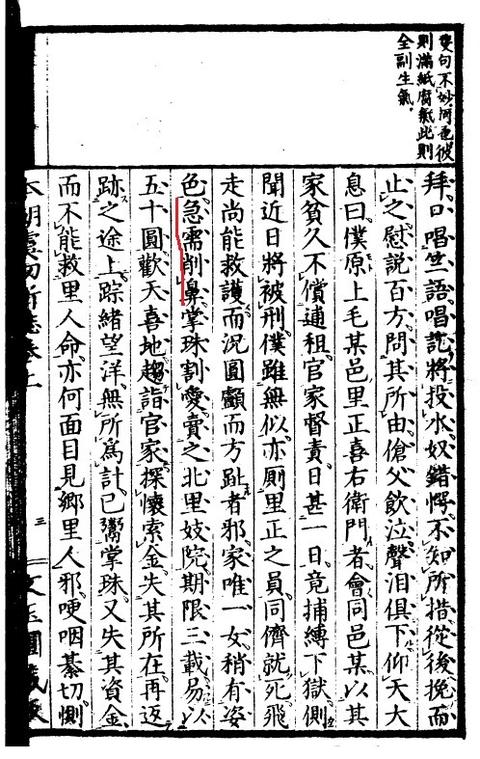 雙句不妙何也彼
則滿紙腐氣此則
全副生氣。
拜口唱竺語唱訖將投水奴錯愕不知所措從後挽而
止之慰説百方問其所由傖父飲泣聲泪俱下仰天大
息曰僕原上毛某邑里正喜右衛門者會同邑某以其
家貧久不償逋租官家督責日甚一日竟捕縛下獄側
聞近日將被刑僕雖無似亦厠里正之員同儕就死飛
走尚能救護而況圓顱而方趾者邪家唯一女稍有姿
色急需削鼻掌珠割愛賣之北里妓院期限三載易以
五十圓歡天喜地趨詣官家探懷索金失其所在再返
跡之途上踪緒望洋無所爲計已鬻掌珠又失其資金
而不能救里人命亦何面目見鄉里人邪哽咽綦切惻
本朝虞初新誌卷上
三
文玉圃藏版